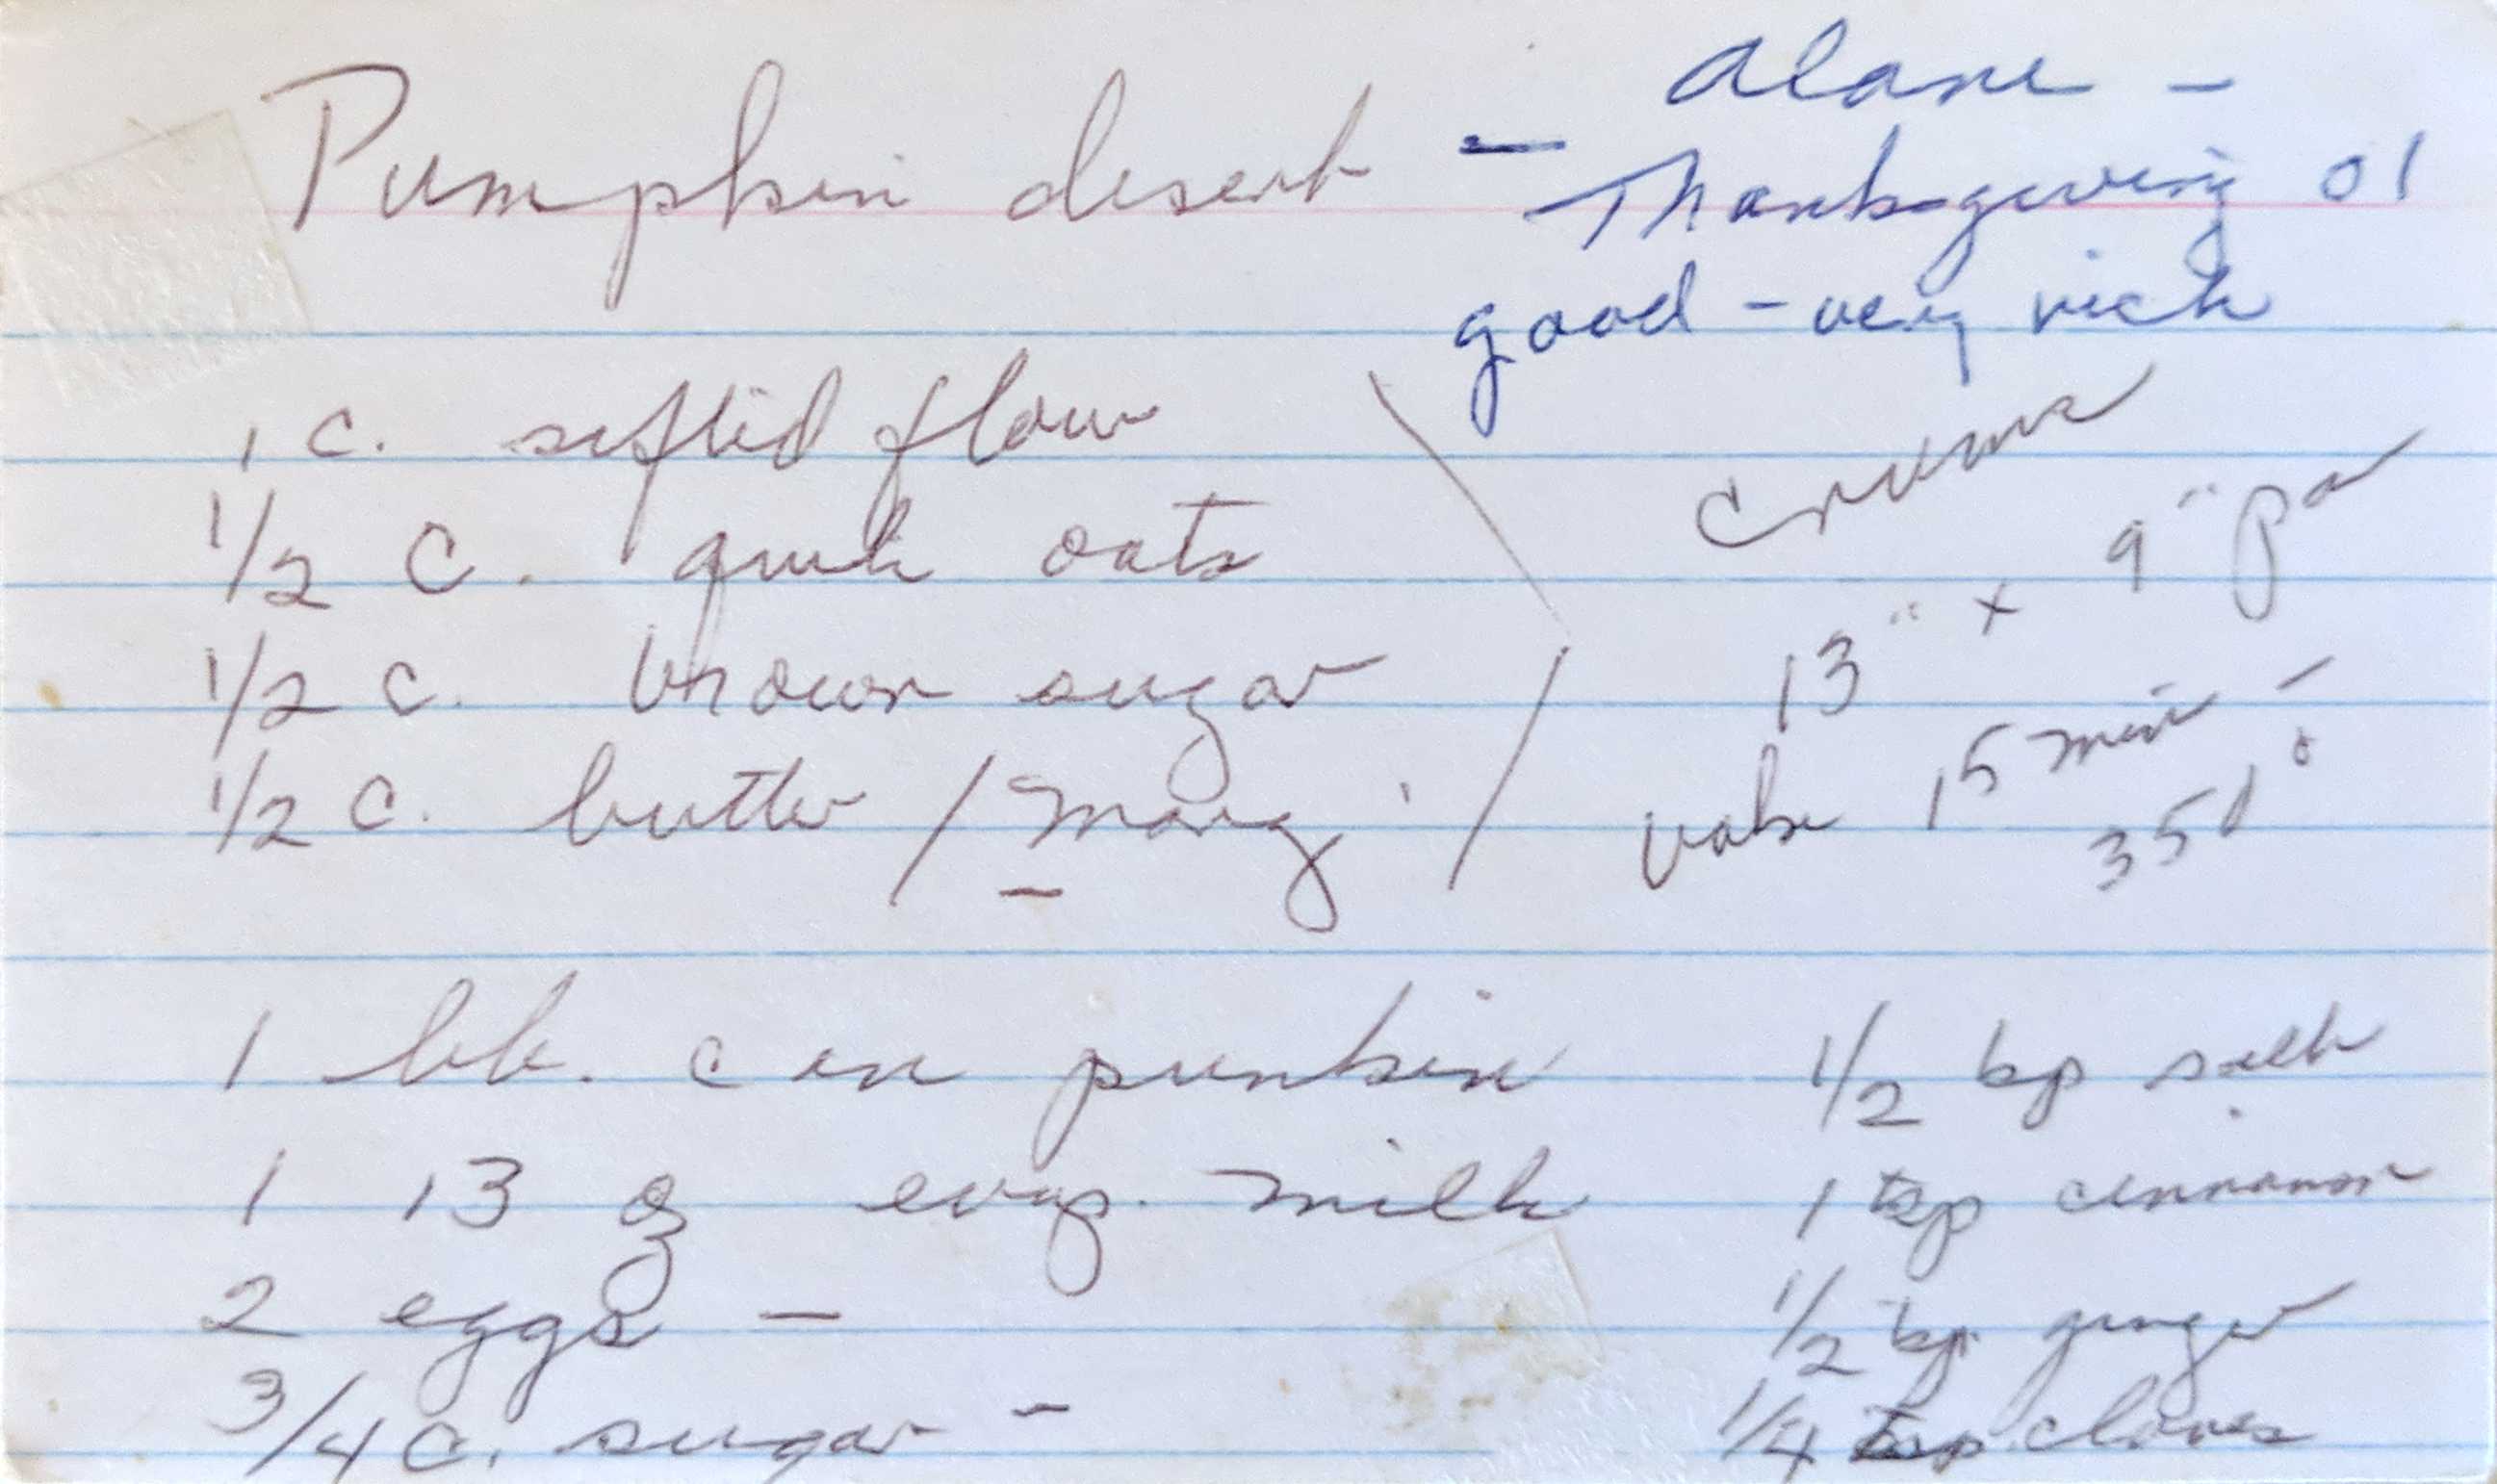 Pumpkin desert - Alane -
Thanksgiving 01
good - very rich
1 c. sifted flour
1/2 c. quick oats
1/2 c. brown sugar
1/2 c. butter / marg.
13" x 9" pan
bake 15 min -
350°
1 lb. can punkin
1 13 oz evap. milk
2 eggs -
3/4 c. sugar -
1/2 tsp salt
1 tsp cinnamon
1/2 tsp ginger
1/4 tsp cloves